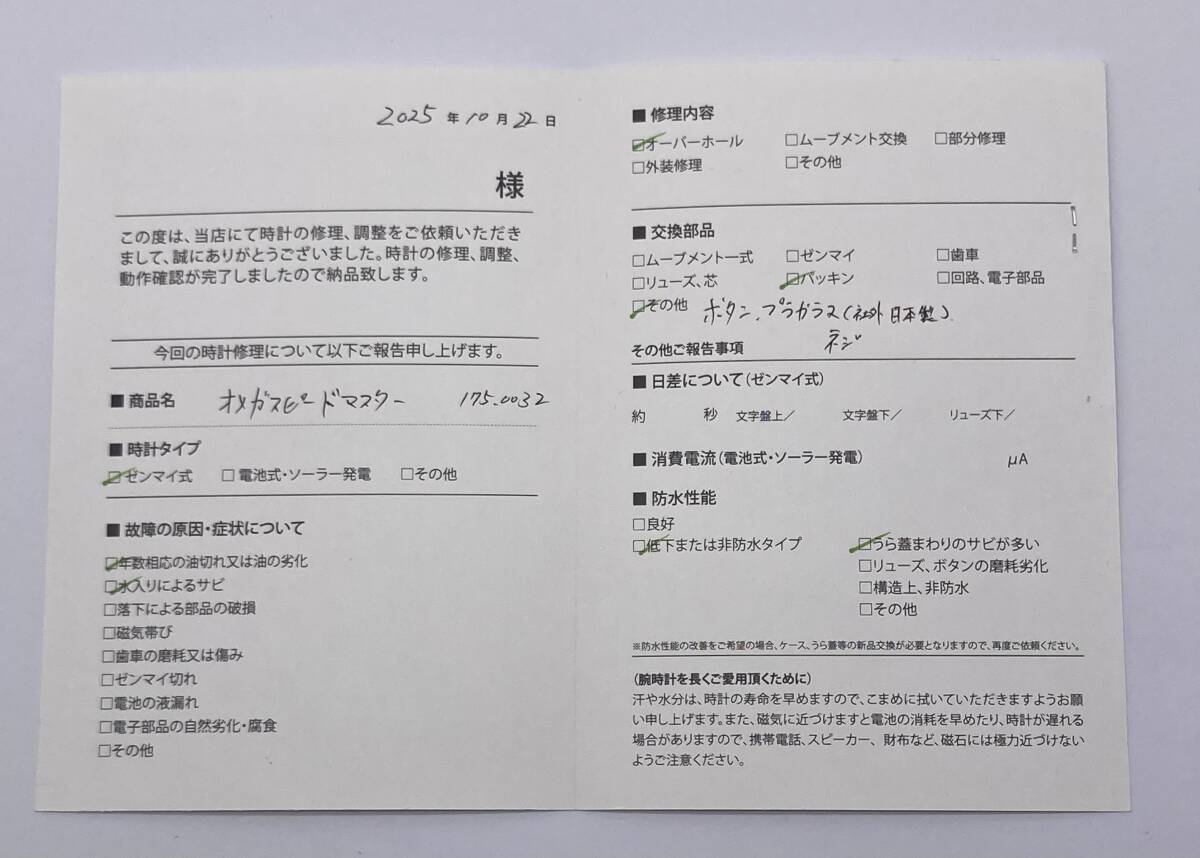 2025年10月22日
様
この度は、当店にて時計の修理、調整をご依頼いただき
まして、誠にありがとうございました。時計の修理、調整、
動作確認が完了しましたので納品致します。
今回の時計修理について以下ご報告申し上げます。
■商品名 オメガスピードマスター 175.0032
■時計タイプ
□ゼンマイ式 □電池式・ソーラー発電 □その他
■故障の原因・症状について
□年数相応の油切れ又は油の劣化
□水入りによるサビ
□落下による部品の破損
□磁気帯び
□歯車の磨耗又は傷み
□ゼンマイ切れ
□電池の液漏れ
□電子部品の自然劣化・腐食
□その他
■修理内容
□オーバーホール □ムーブメント交換 □部分修理
□外装修理 □その他
■交換部品
□ムーブメント一式 □ゼンマイ □歯車
□リューズ、芯 □パッキン □回路、電子部品
□その他 ボタン、プラガラス(社外日本製)
ネジ
その他ご報告事項
■日差について(ゼンマイ式)
約 秒 文字盤上/ 文字盤下/ リューズ下/
■消費電流(電池式・ソーラー発電) μA
■防水性能
□良好
□低下または非防水タイプ □うら蓋まわりのサビが多い
□リューズ、ボタンの磨耗劣化
□構造上、非防水
□その他
※防水性能の改善をご希望の場合、ケース、うら蓋等の新品交換が必要となりますので、再度ご依頼ください。
(腕時計を長くご愛用頂くために)
汗や水分は、時計の寿命を早めますので、こまめに拭いていただきますようお願
い申し上げます。また、磁気に近づけますと電池の消耗を早めたり、時計が遅れる
場合がありますので、携帯電話、スピーカー、財布など、磁石には極力近づけない
ようご注意ください。